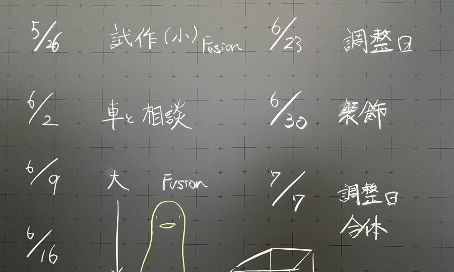 5/26 試作(小)Fusion
6/2 車と相談
6/9 大 Fusion
6/16
6/23 調整日
6/30 装飾
7/7 調整日
合体